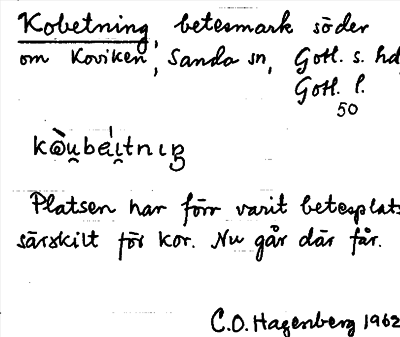 Kobetning, betesmark söder
om Koviken, Sanda sn, Gotl. s. hd,
Gotl. l.
50
kὼu̯bèi̯tnıŋ
Platsen har förr varit betesplats
särskilt för kor. Nu går där får.
C.O. Hagenberg 1962